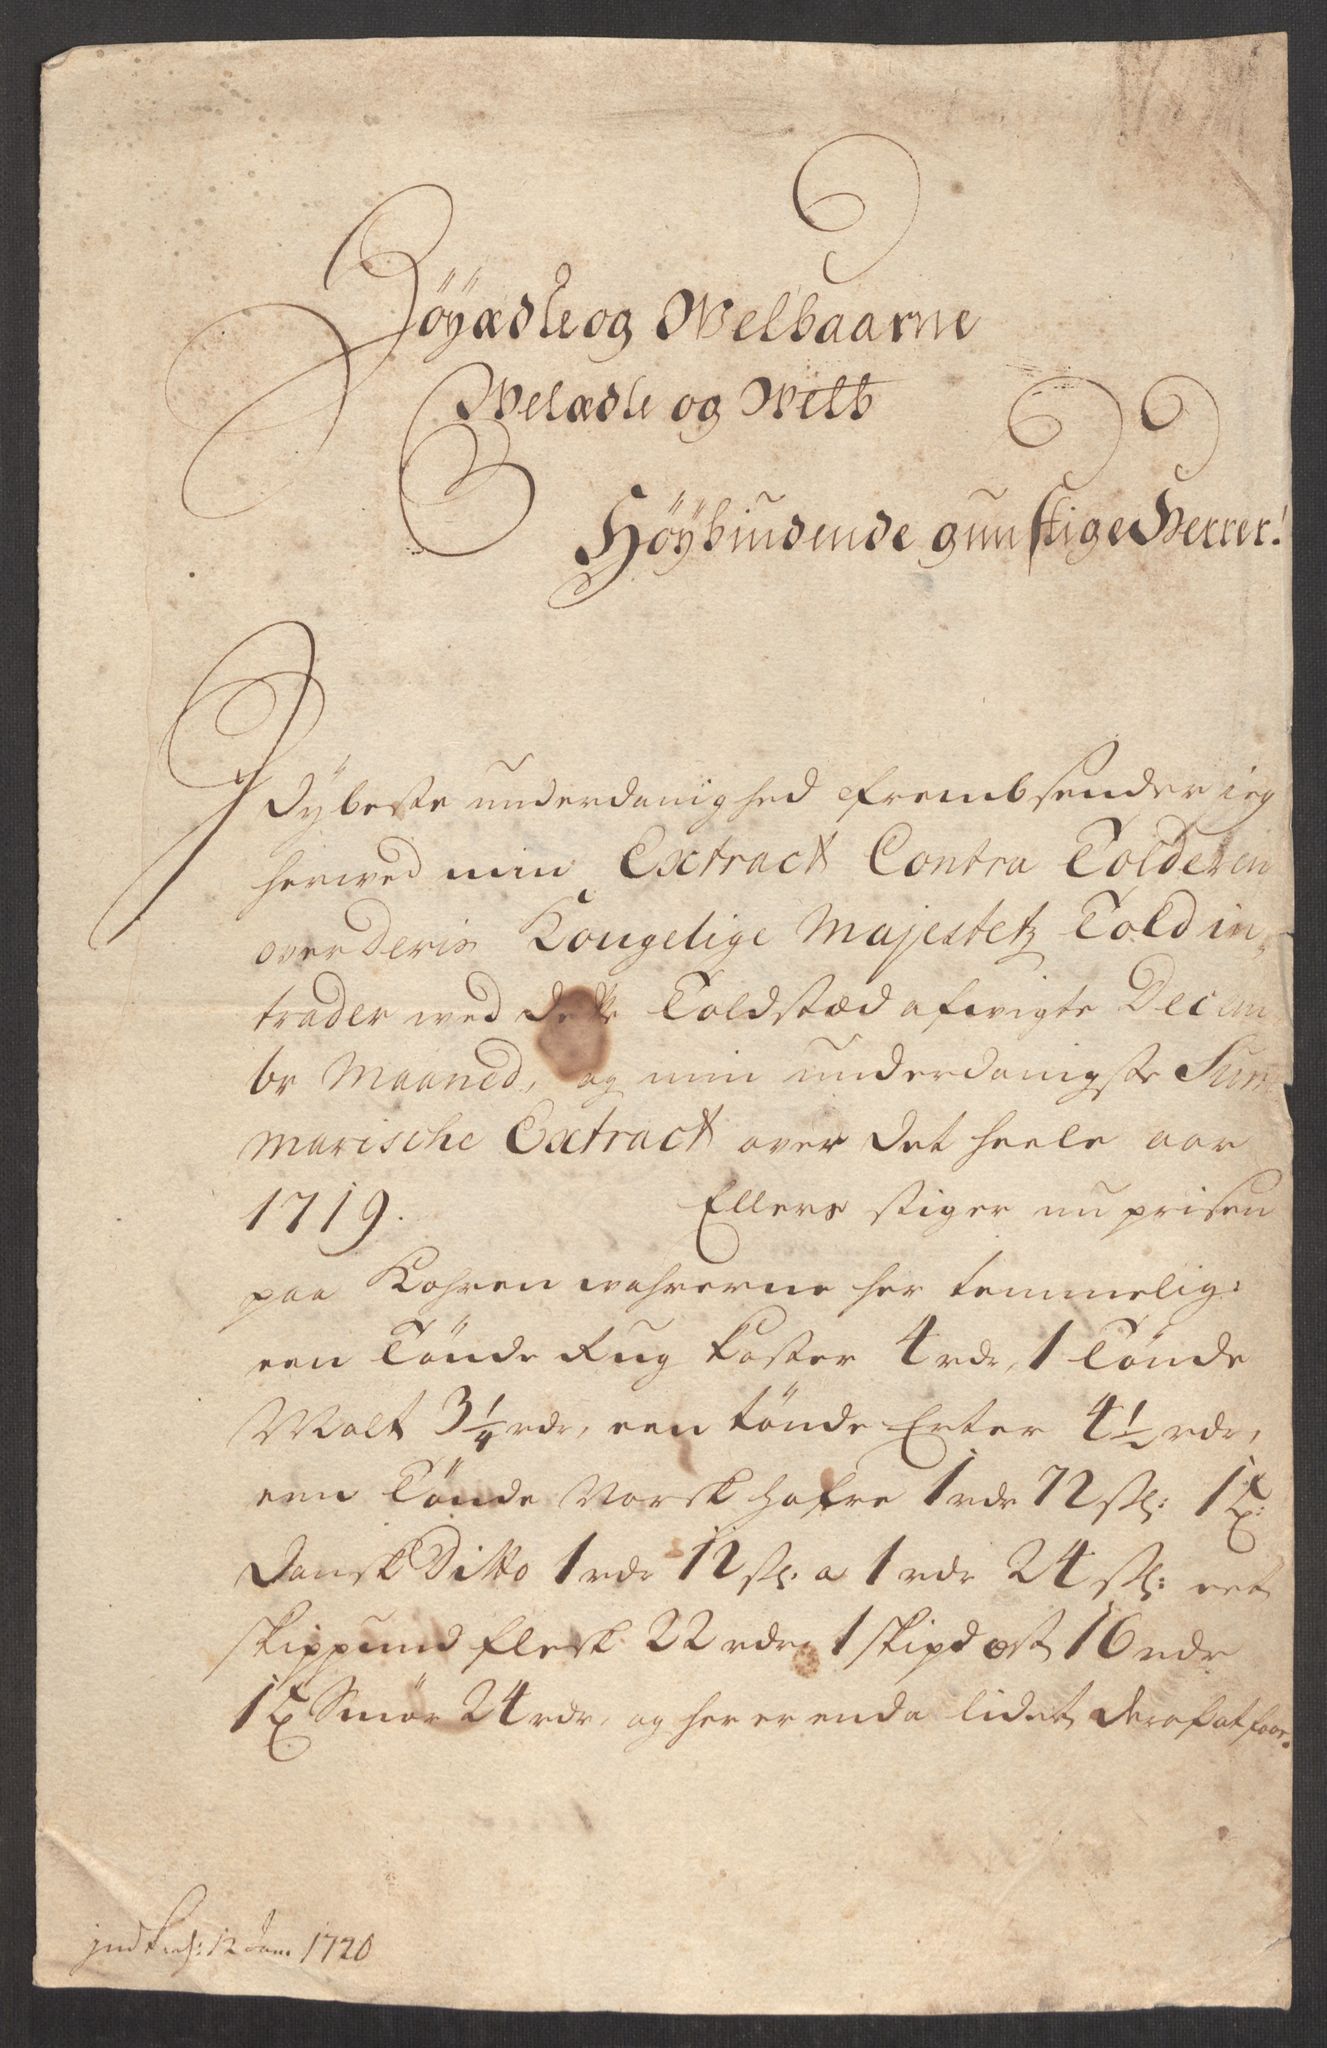 Höyædle og Welbaarne
Welædle og Welb
Höybiudende gunstige Herrer!
I dÿbeste underdanighed frembsender ieg
herwed min Extract Contra Tolderen
over Deris Kongelige Majestetz Told in-
trader wed dette Toldstæd afwigte Decem
br Maaned, og min underdanigste Sum
marische Extract over det heele aar
1719. Ellers stiger nu prisen
paa Kohren wahrerne her temmelig:
een Tönde Rug koster 4 rdr, 1 Tönde
Malt 3 1/4 rdr, een tönde Erter 4 1/2 rdr,
een Tönde Norsk hafre 1 rdr 72 sk: 1 T:
Dansk Ditto 1 rdr 12 sk: a 1 rdr 24 sk: eet
skippund flesk 22 rdr, 1 skipd ost 16 rdr
1 Smör 24 rdr, og her er enda lidet deraf at faae.
12 Jan: 1720